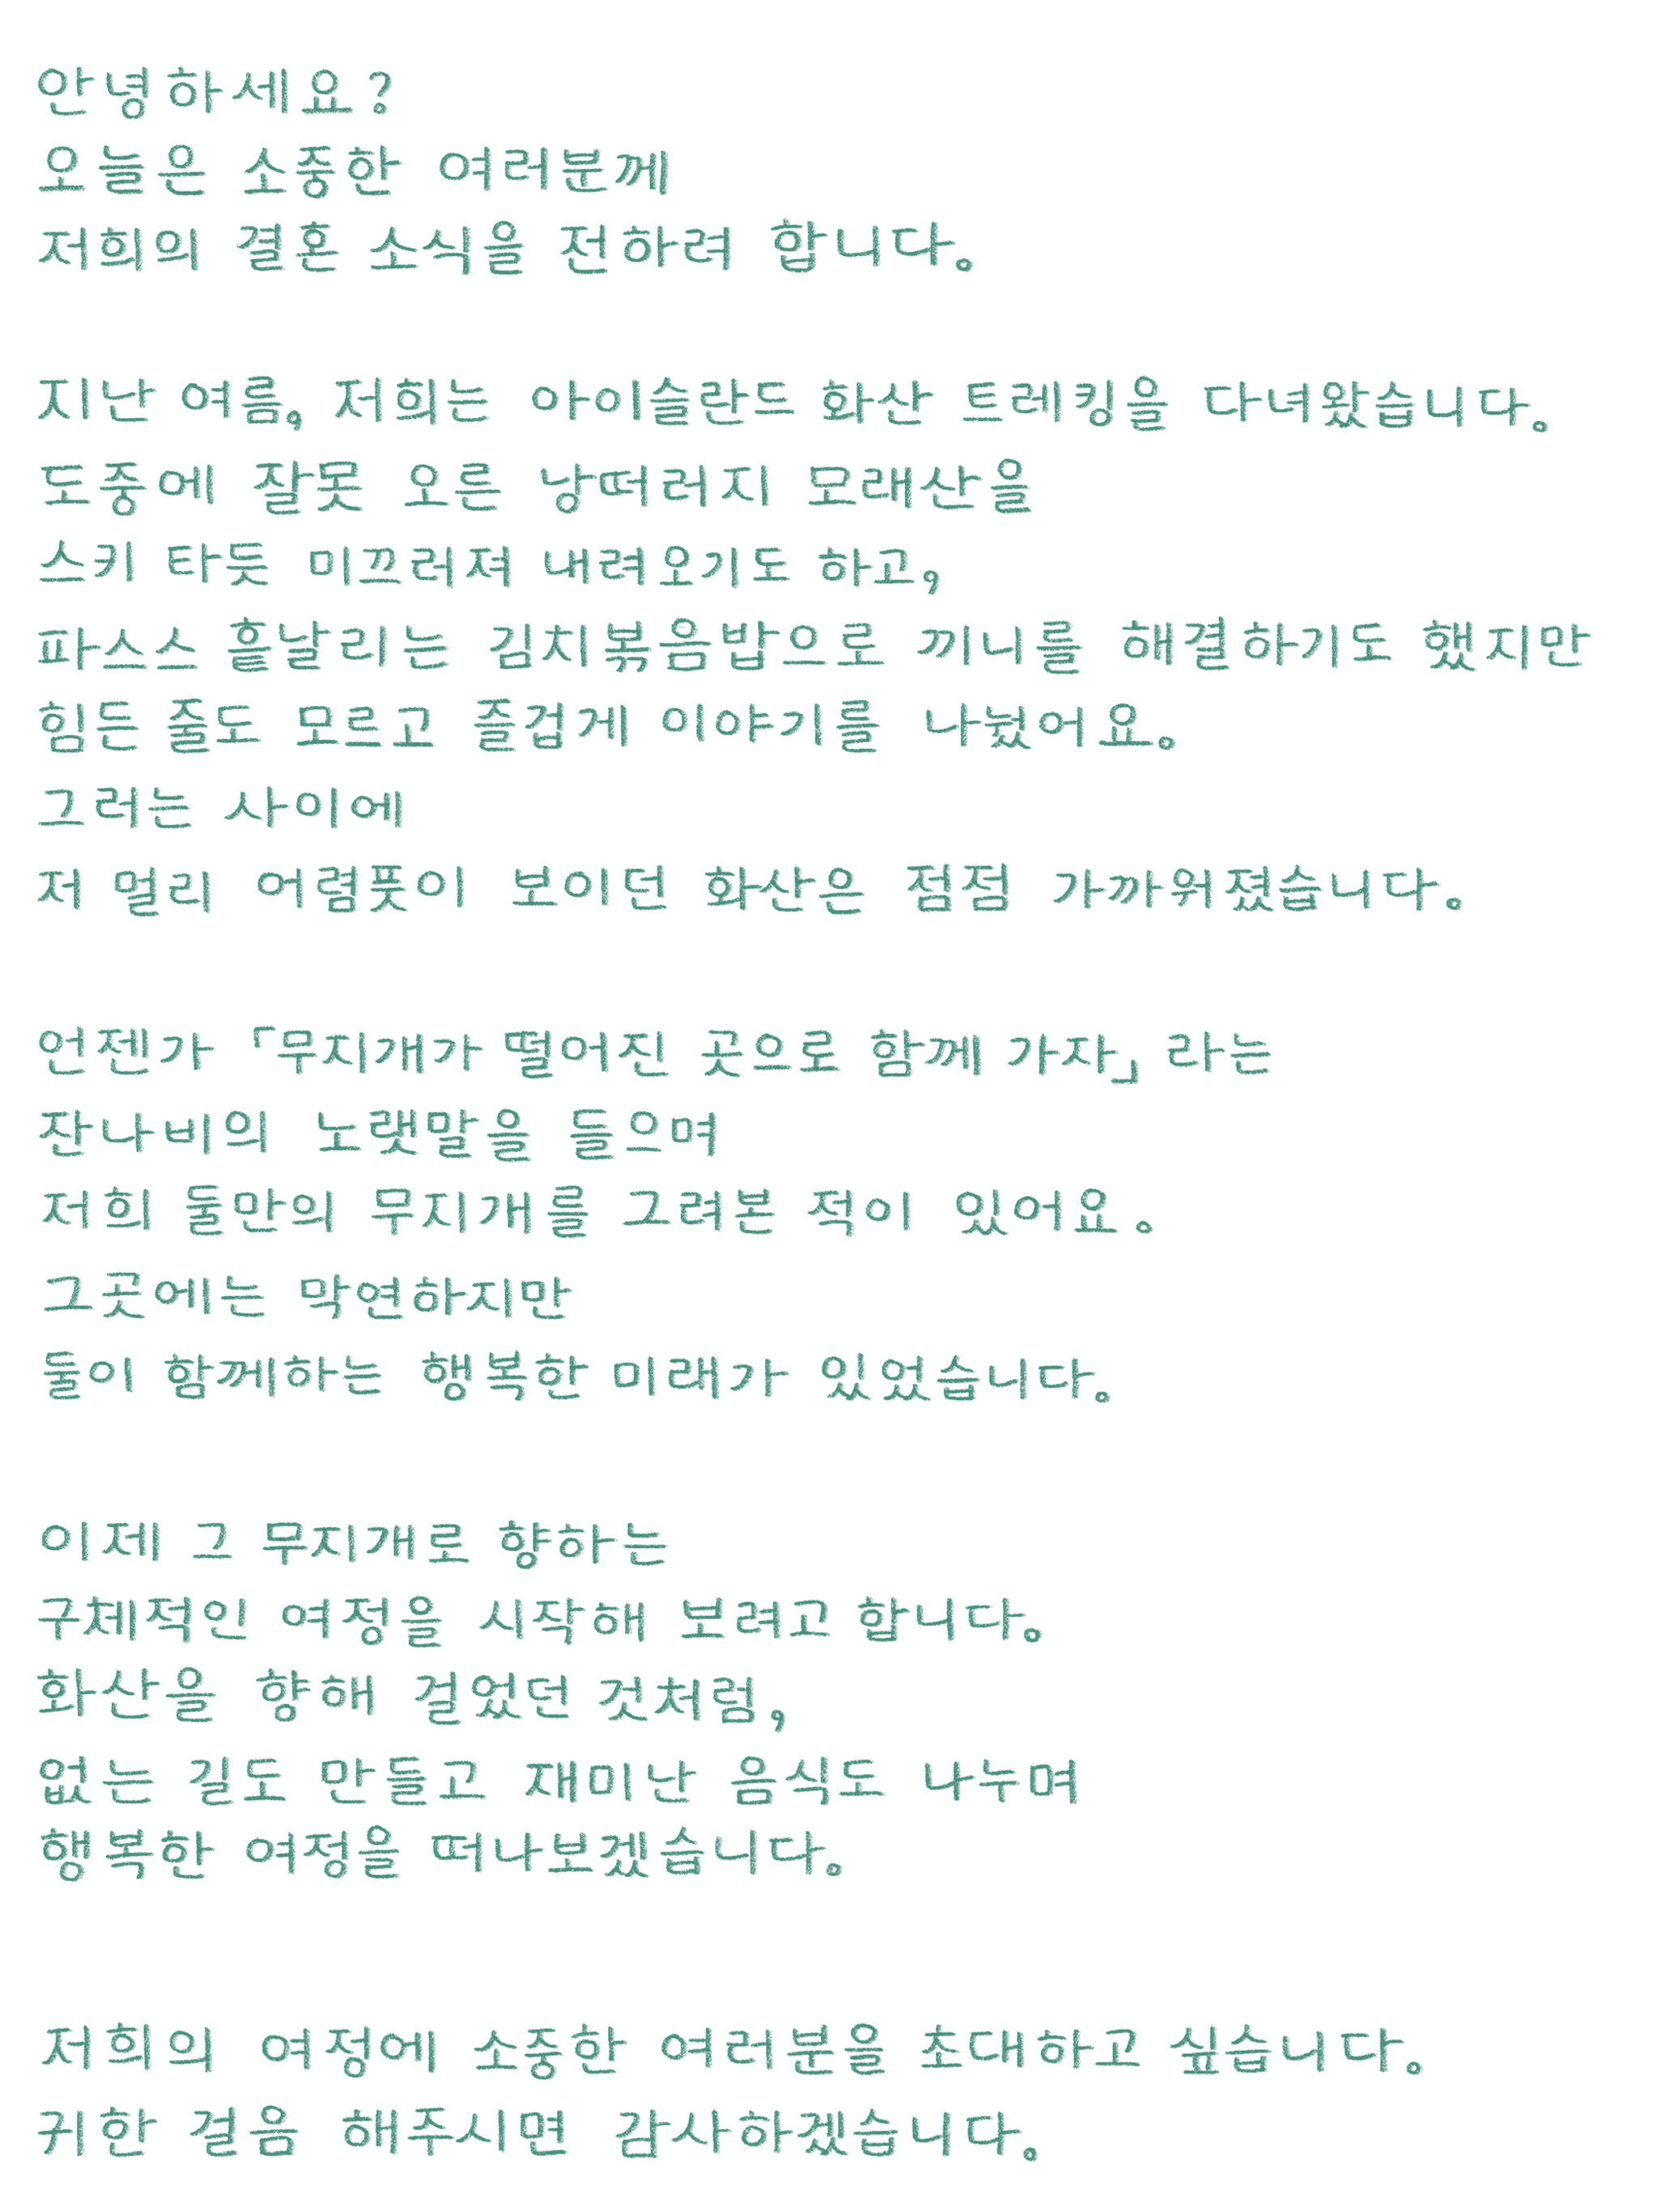 안녕하세요?
오늘은 소중한 여러분께
저희의 결혼 소식을 전하려 합니다.
지난 여름, 저희는 아이슬란드 화산 트레킹을 다녀왔습니다.
도중에 잘못 오른 낭떠러지 모래산을
스키 타듯 미끄러져 내려오기도 하고,
파스스 흩날리는 김치볶음밥으로 끼니를 해결하기도 했지만
힘든 줄도 모르고 즐겁게 이야기를 나눴어요.
그러는 사이에
저 멀리 어렴풋이 보이던 화산은 점점 가까워졌습니다.
언젠가 「무지개가 떨어진 곳으로 함께 가자」 라는
잔나비의 노랫말을 들으며
저희 둘만의 무지개를 그려본 적이 있어요.
그곳에는 막연하지만
둘이 함께하는 행복한 미래가 있었습니다.
이제 그 무지개로 향하는
구체적인 여정을 시작해 보려고 합니다.
화산을 향해 걸었던 것처럼,
없는 길도 만들고 재미난 음식도 나누며
행복한 여정을 떠나보겠습니다.
저희의 여정에 소중한 여러분을 초대하고 싶습니다.
귀한 걸음 해주시면 감사하겠습니다.